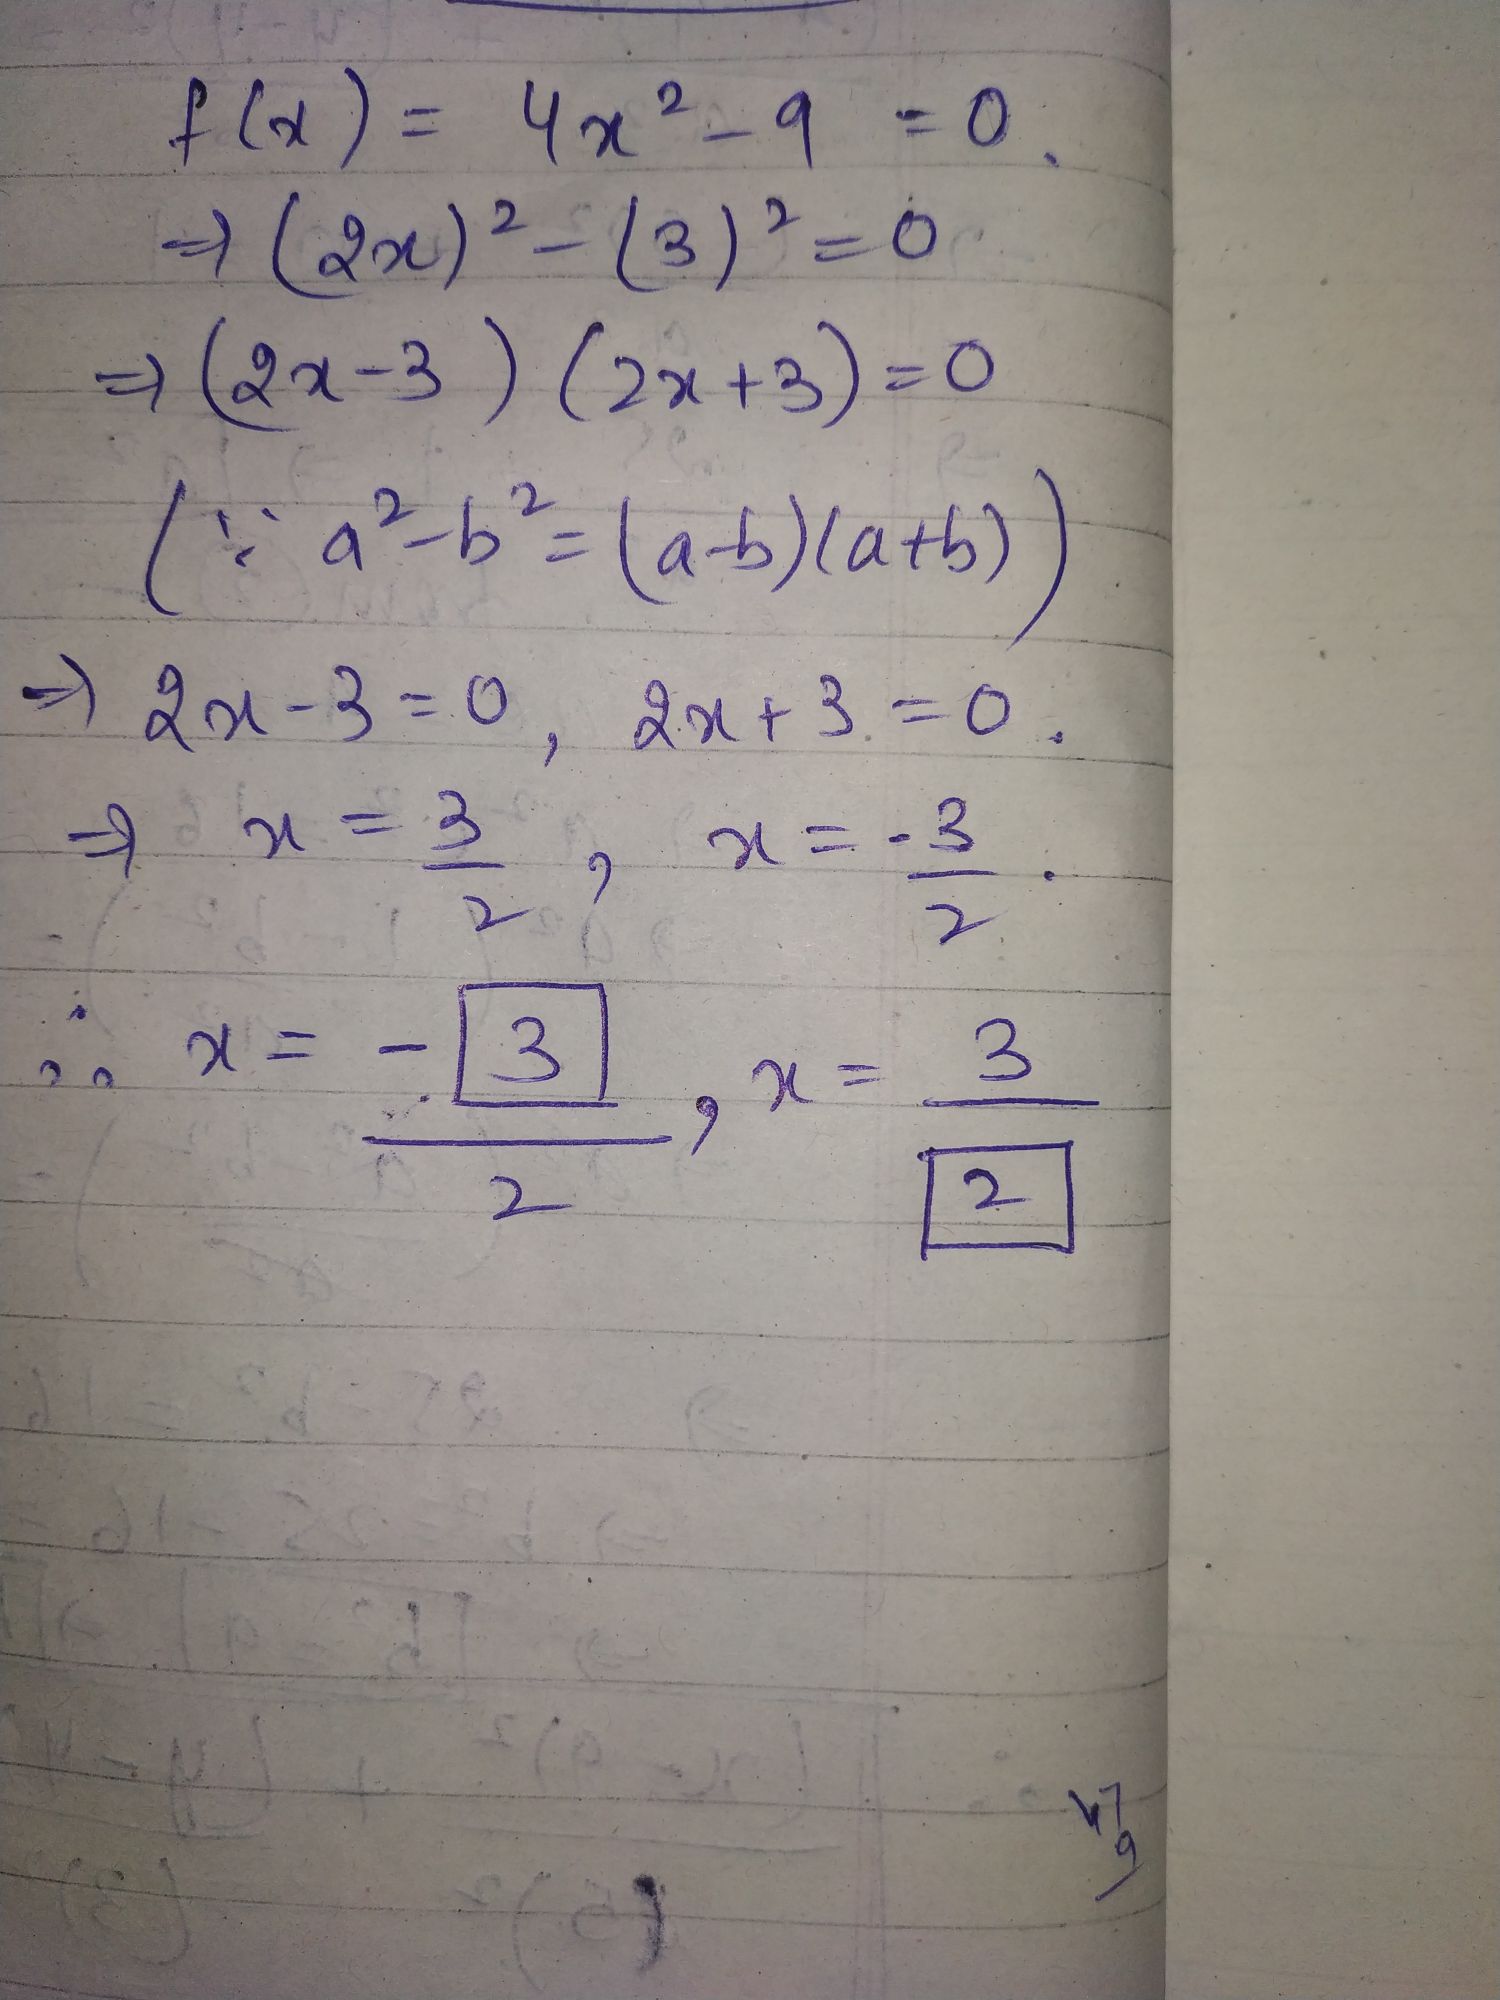 f(x) = 4x² - 9 = 0.
⇒ (2x)² - (3)² = 0
⇒ (2x-3) (2x+3) = 0
(∵ a²-b² = (a-b)(a+b))
⇒ 2x-3 = 0, 2x+3 = 0.
⇒ x = 3/2, x = -3/2.
∴ x = -3/2, x = 3/2